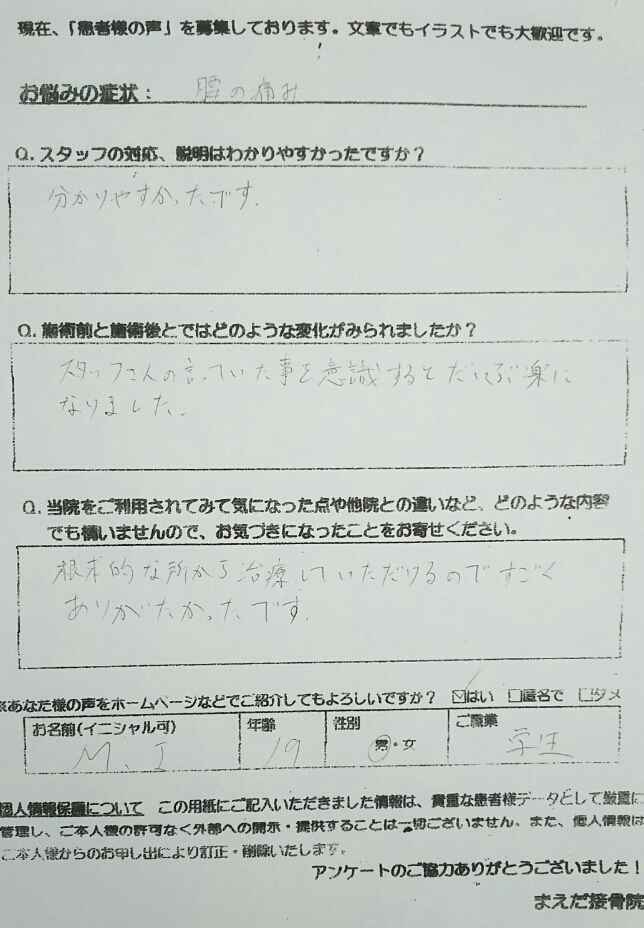 現在、「患者様の声」を募集しております。文章でもイラストでも大歓迎です。
お悩みの症状： 腰の痛み
Q. スタッフの対応、説明はわかりやすかったですか？
分かりやすかったです.
Q. 施術前と施術後とではどのような変化がみられましたか？
スタッフさんの言っていた事を意識するとだいぶ楽に
なりました.
Q. 当院をご利用されてみて気になった点や他院との違いなど、どのような内容
でも構いませんので、お気づきになったことをお寄せください。
根本的な所から治療していただけるのですごく
ありがたかったです.
※あなた様の声をホームページなどでご紹介してもよろしいですか？ ☑はい □匿名で □ダメ
お名前(イニシャル可) 年齢 性別 ご職業
M. I 19 男・女 学生
個人情報保護について この用紙にご記入いただきました情報は、貴重な患者様データとして厳重に
管理し、ご本人様の許可なく外部への開示・提供することは一切ございません。また、個人情報は
ご本人様からのお申し出により訂正・削除いたします。
アンケートのご協力ありがとうございました！
まえだ接骨院